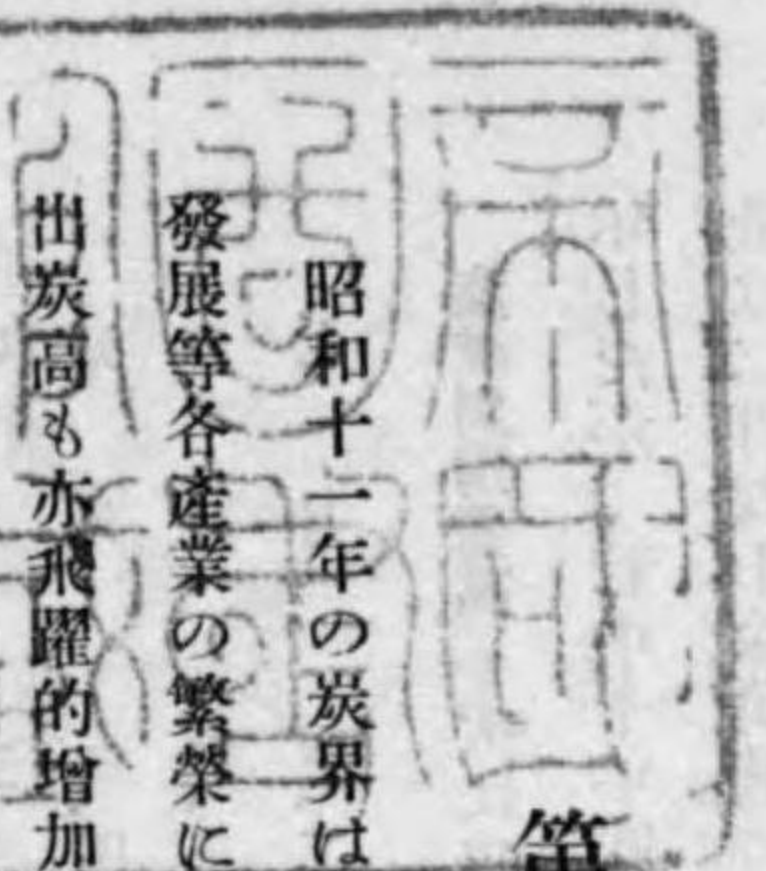 第
昭和十一年の炭界は
發展等各產業の繁榮に
出炭高も亦飛躍的增加